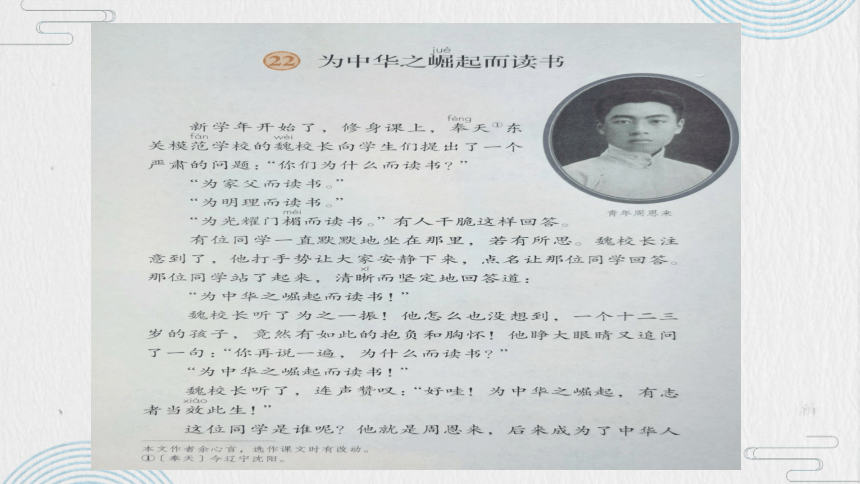 jué
22 为中华之崛起而读书
fèng
新学年开始了，修身课上，奉天①东
fàn wèi
关模范学校的魏校长向学生们提出了一个
严肃的问题：“你们为什么而读书？”
“为家父而读书。”
“为明理而读书。”
méi
“为光耀门楣而读书。”有人干脆这样回答。
青年周恩来
有位同学一直默默地坐在那里，若有所思。魏校长注
意到了，他打手势让大家安静下来，点名让那位同学回答。
xī
那位同学站了起来，清晰而坚定地回答道：
“为中华之崛起而读书！”
魏校长听了为之一振！他怎么也没想到，一个十二三
岁的孩子，竟然有如此的抱负和胸怀！他睁大眼睛又追问
了一句：“你再说一遍，为什么而读书？”
“为中华之崛起而读书！”
魏校长听了，连声赞叹：“好哇！为中华之崛起，有志
xiào
者当效此生！”
这位同学是谁呢？他就是周恩来，后来成为了中华人
本文作者余心言，选作课文时有改动。
①〔奉天〕今辽宁沈阳。